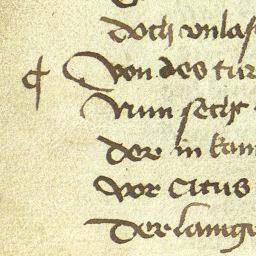 doch vnlas
¶ Von des tur
Nun sechs
der in kam
vor Citus
Der lantgr